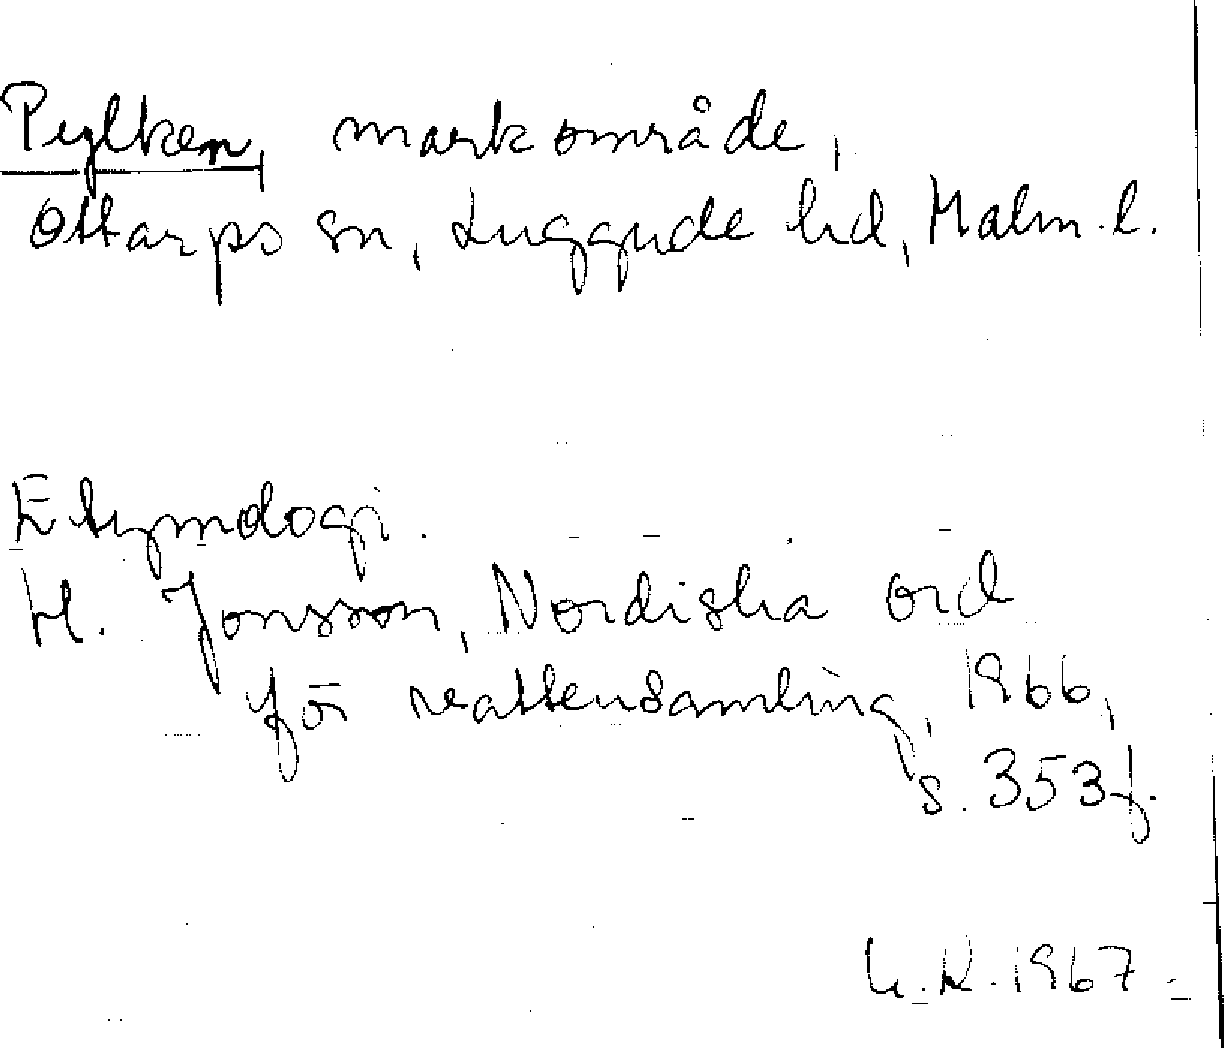 Pylken, markområde,
Ottarps sn, Luggude hd, Malm. l.
Etymologi.
H. Jonsson, Nordiska ord
för vattensamling, 1966,
s. 353 f.
1967